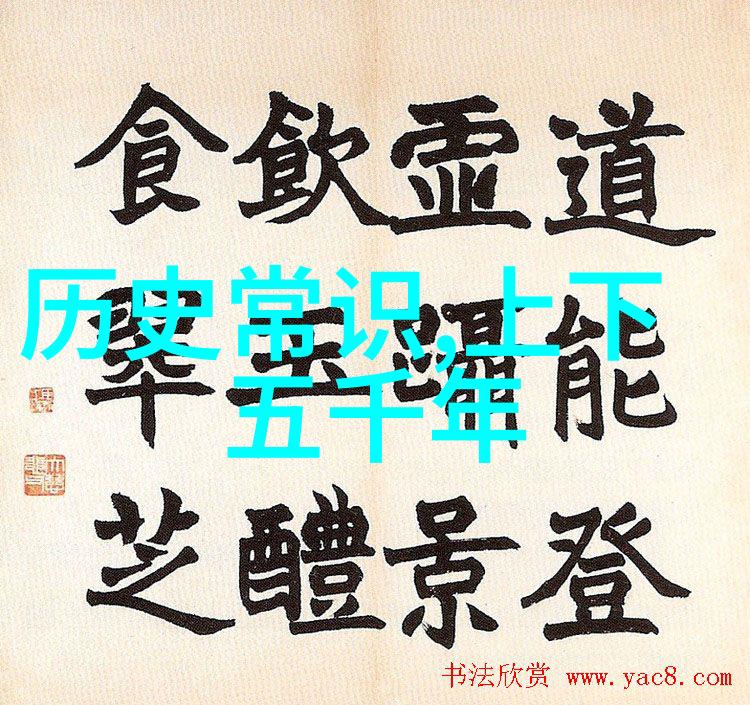 道能登
虛躡景
飲玉醴
食翠芝
历史常识,上下
五千年
书法欣赏 www.yac8.com